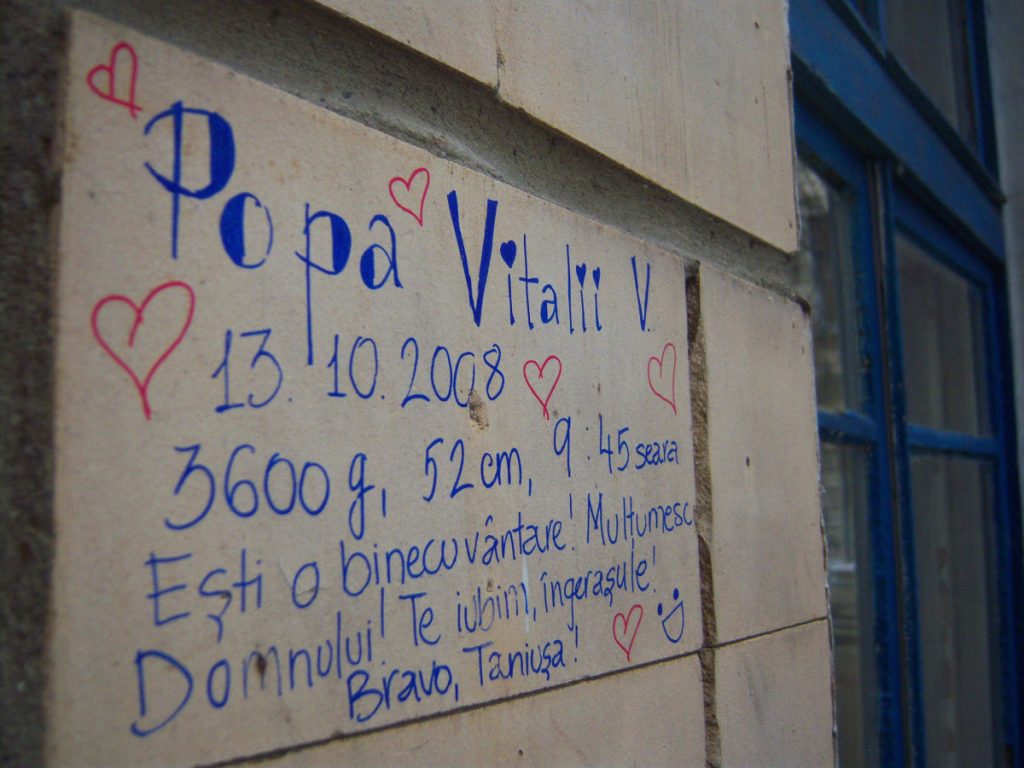 Popa Vitalii V.
13. 10. 2008
3600 g, 52 cm, 9:45 seara
Ești o binecuvântare! Multumesc
Domnului! Te iubim, îngerașule!
Bravo, Taniușa!